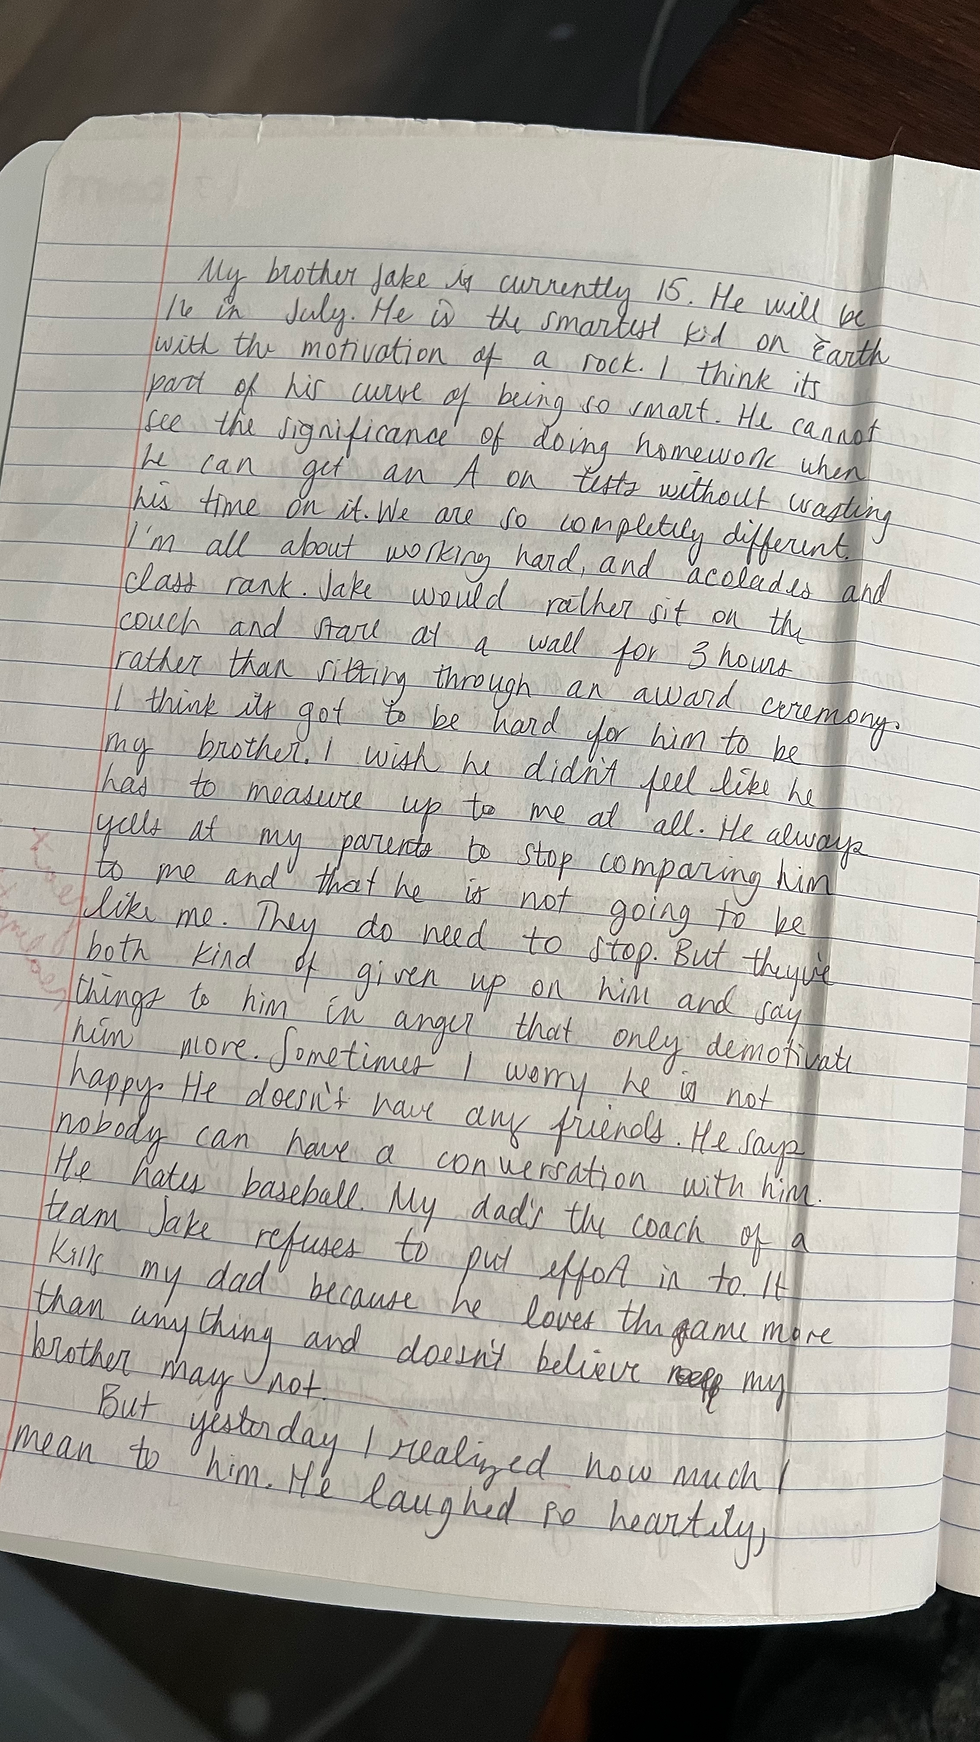 My brother Jake is currently 15. He will be
16 in July. He is the smartest kid on Earth
with the motivation of a rock. I think its
part of his curse of being so smart. He cannot
see the significance of doing homework when
he can get an A on tests without wasting
his time on it. We are so completily different.
I'm all about working hard, and acolades and
class rank. Jake would rather sit on the
couch and stare at a wall for 3 hours
rather than sitting through an award ceremony.
I think its got to be hard for him to be
my brother. I wish he didn't feel like he
has to measure up to me at all. He always
yells at my parents to stop comparing him
to me and that he is not going to be
like me. They do need to stop. But they've
both kind of given up on him and say
things to him in anger that only demotivate
him more. Sometimes I worry he is not
happy. He doesn't have any friends. He says
nobody can have a conversation with him.
He hates baseball. My dad's the coach of a
team Jake refuses to put effort in to. It
kills my dad because he loves the game more
than anything and doesn't believe my
brother may not.
But yesterday I realized how much I
mean to him. He laughed so heartily,